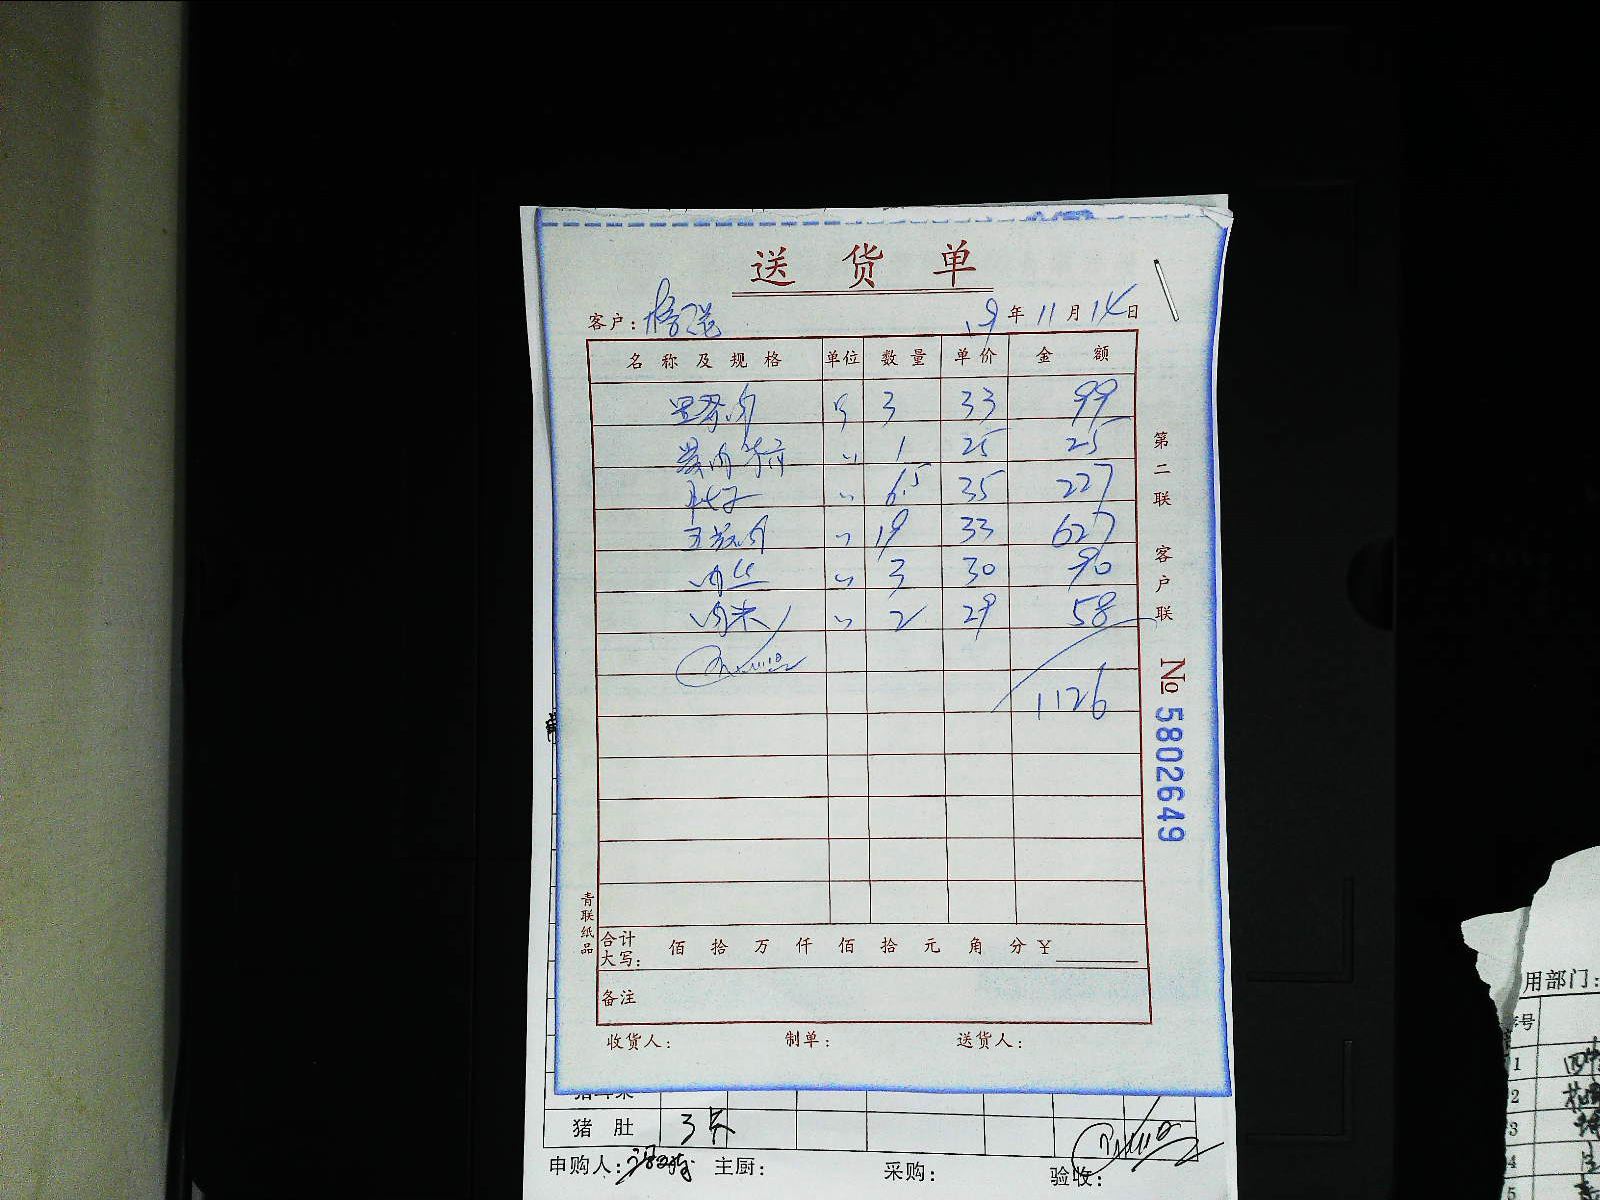 送货单
客户: 19年11月14日
名称及规格 单位 数量 单价 金额
斤 3 33 99
〃 1 25 25
肚子 〃 6.5 35 227
五花肉 〃 19 33 627
肉丝 〃 3 30 90
肉末 〃 2 29 58
1126
合计大写: 佰 拾 万 仟 佰 拾 元 角 分 ¥
备注
收货人: 制单: 送货人:
第二联 客户联
№ 5802649
青联纸品
猪肚 3斤
申购人: 主厨: 采购: 验收:
用部门:
序号
1
2
3
4
5